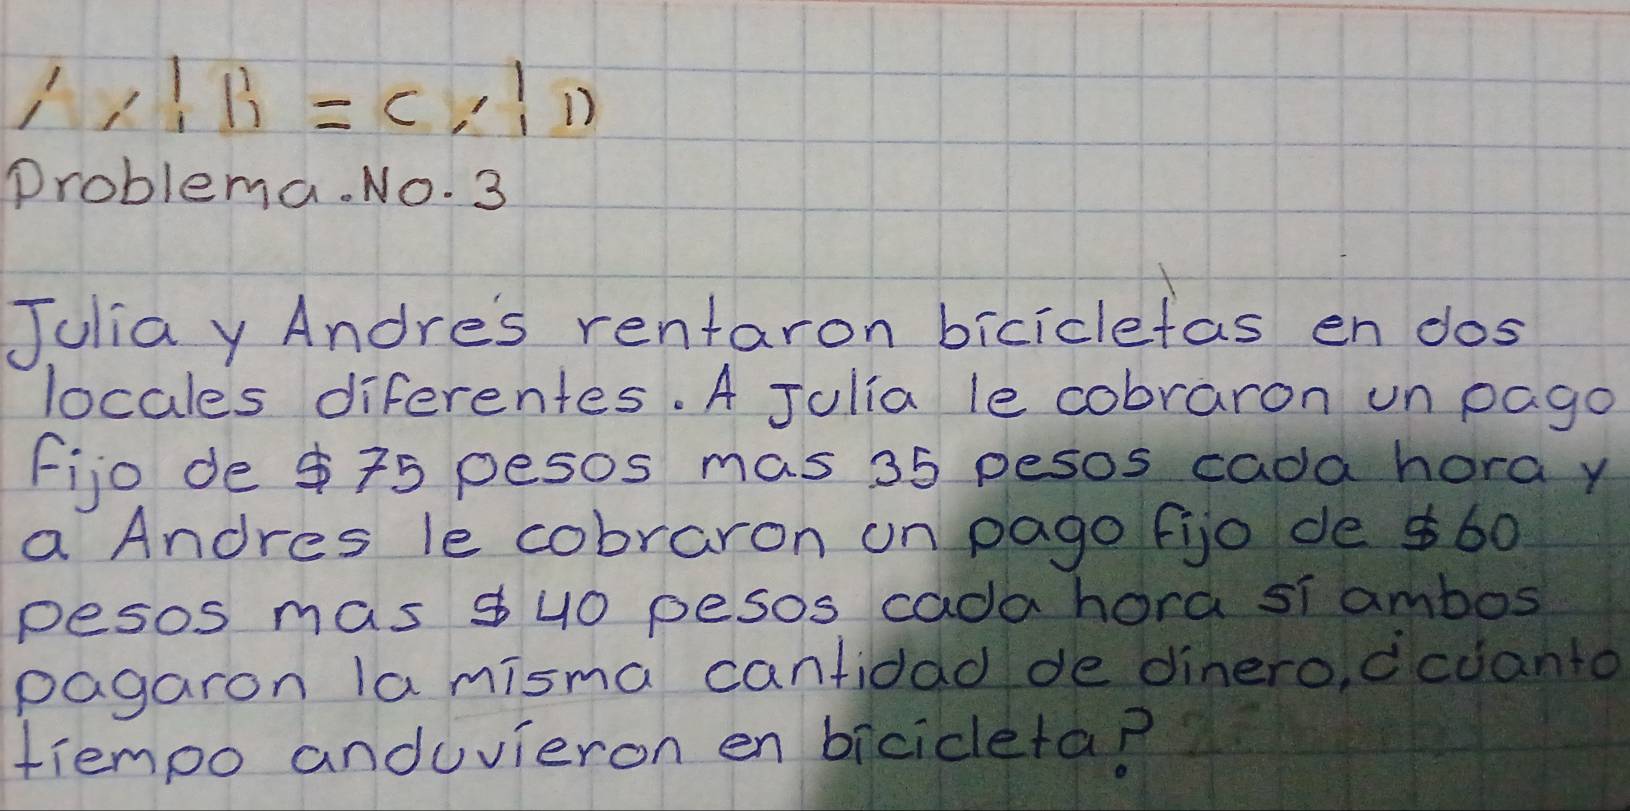 Ax+B = Cx+D
Problema.No.3
Julia y Andrés rentaron bicicletas en dos
locales diferentes. A Julia le cobraron un pago
fijo de $75 pesos mas 35 pesos cada hora y
a Andres le cobraron un pago fijo de $60
pesos mas $40 pesos cada hora si ambos
pagaron la misma cantidad de dinero, ¿cuanto
tiempo anduvieron en bicicleta?